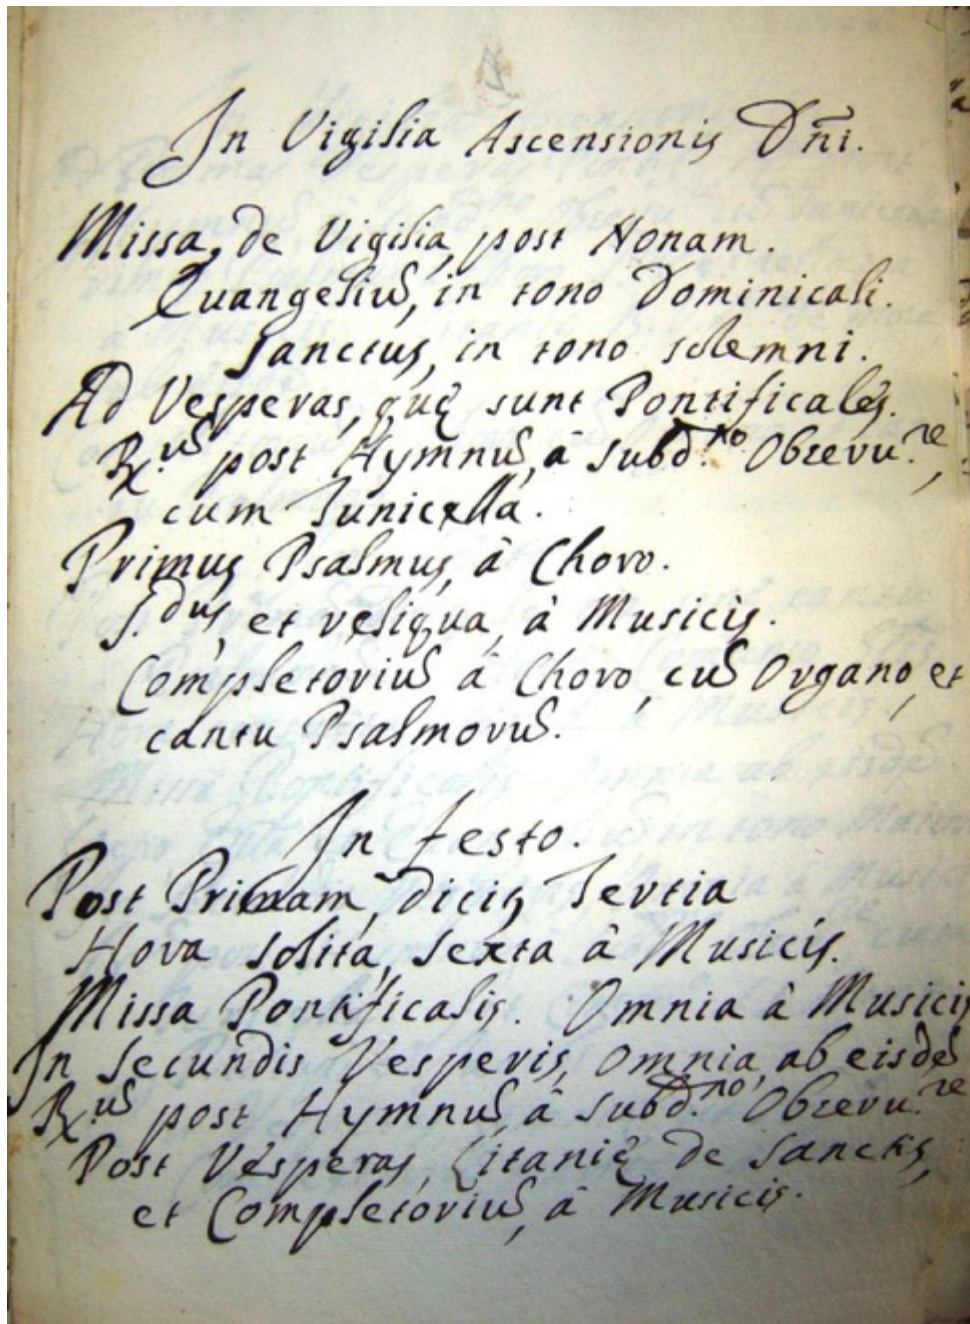 In Vigilia Ascensionis Dñi.
Missa, de Vigilia, post Nonam.
Euangeliũ, in tono Dominicali.
Sanctus, in tono solemni.
Ad Vesperas, quę sunt Pontificales.
Rx.ũ post Hymnũ, à Subd.no Obseru.re,
cum Tunicella.
Primus Psalmus, à Choro.
S.dus, et reliqua, à Musicis.
Completoriũ à Choro, cũ Organo, et
cantu Psalmorũ.
In festo.
Post Primam, dicit, Tertia
Hora solita, Sexta à Musicis.
Missa Pontificalis. Omnia à Musicis
In Secundis Vesperis, omnia, ab eisdẽ
Rx.ũ post Hymnũ, à Subd.no Obseru.re
Post Vesperas, Litanię de Sanctis,
et Completoriũ, à Musicis.